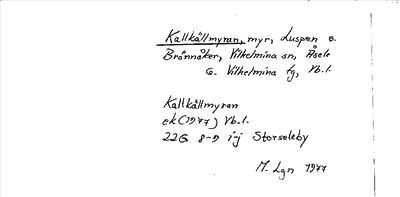 Kallkällmyran, myr, Luspen o.
Brännåker, Vilhelmina sn, Åsele
G. Vilhelmina tg, Vb.l.
Kallkällmyran
ek (1977) Vb.l.
22G 8-9 i-j Storseleby
M. Lgn 1977